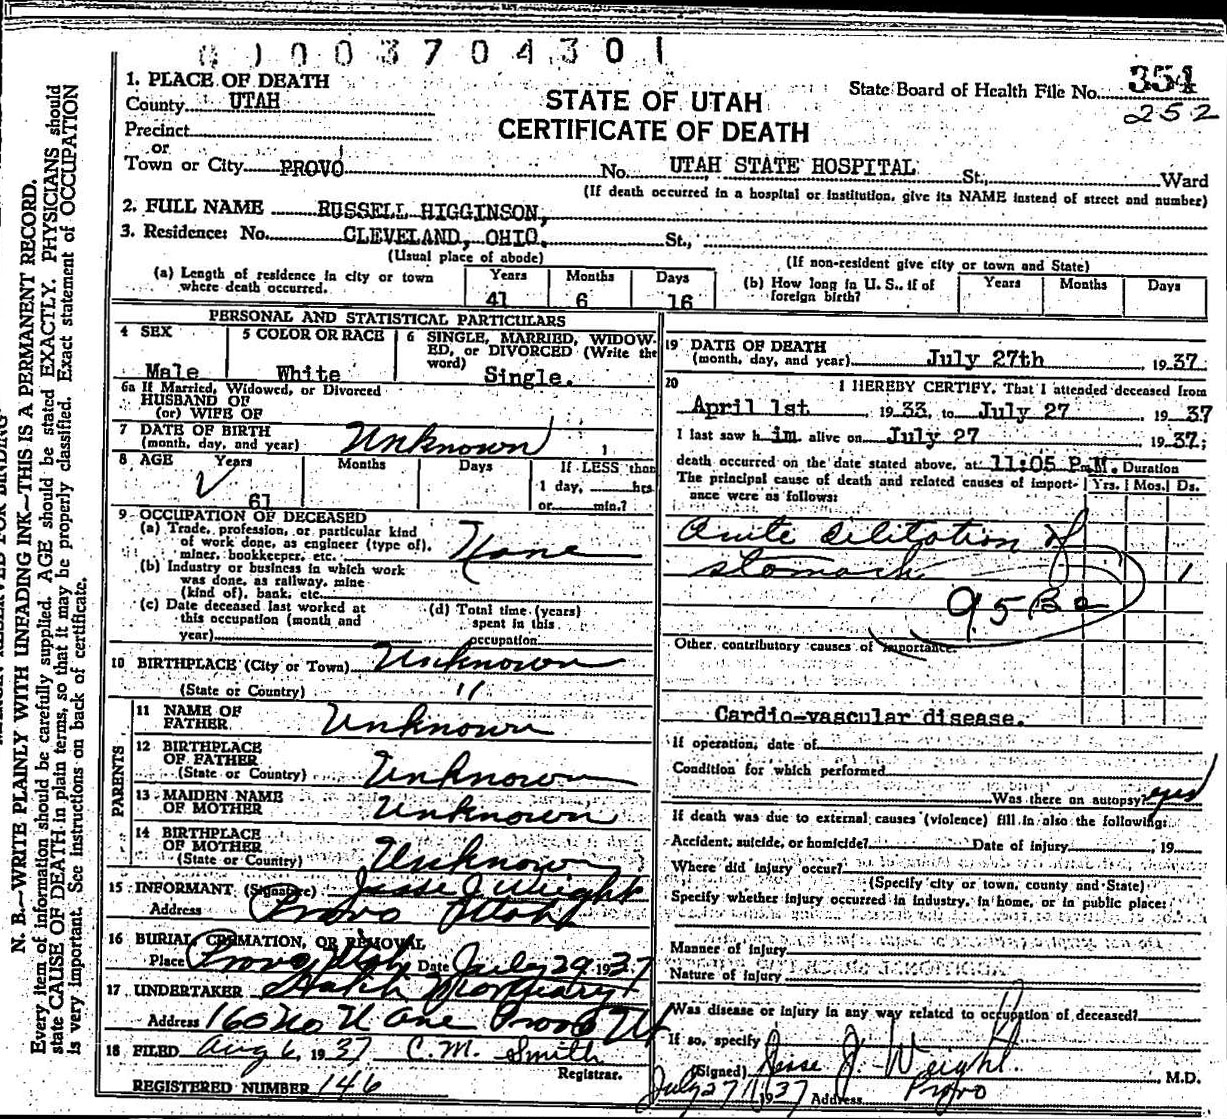 01003704301
1. PLACE OF DEATH
County UTAH
STATE OF UTAH
CERTIFICATE OF DEATH
State Board of Health File No. 354
252
Precinct
or
Town or City PROVO No. UTAH STATE HOSPITAL St., Ward
(If death occurred in a hospital or institution, give its NAME instead of street and number)
2. FULL NAME RUSSELL HIGGINSON,
3. Residence: No. CLEVELAND, OHIO. St.,
(Usual place of abode) (If non-resident give city or town and State)
(a) Length of residence in city or town where death occurred. Years 41 Months 6 Days 16
(b) How long in U. S., if of foreign birth? Years Months Days
PERSONAL AND STATISTICAL PARTICULARS
4 SEX Male
5 COLOR OR RACE White
6 SINGLE, MARRIED, WIDOWED, or DIVORCED (Write the word) Single.
6a If Married, Widowed, or Divorced
HUSBAND OF
(or) WIFE OF
7 DATE OF BIRTH
(month, day, and year) Unknown
8 AGE Years 61 Months Days If LESS than
1 day, hrs
or min.?
9 OCCUPATION OF DECEASED
(a) Trade, profession, or particular kind
of work done, as engineer (type of),
miner, bookkeeper, etc. None
(b) Industry or business in which work
was done, as railway, mine
(kind of), bank, etc.
(c) Date deceased last worked at
this occupation (month and
year)
(d) Total time (years)
spent in this
occupation
10 BIRTHPLACE (City or Town) Unknown
(State or Country) "
PARENTS
11 NAME OF
FATHER Unknown
12 BIRTHPLACE
OF FATHER
(State or Country) Unknown
13 MAIDEN NAME
OF MOTHER Unknown
14 BIRTHPLACE
OF MOTHER
(State or Country) Unknown
15 INFORMANT (Signature) Jesse J Weight
Address Provo Utah
16 BURIAL, CREMATION, OR REMOVAL
Place Provo, Utah Date July 29 1937
17 UNDERTAKER Hatch Mortuary
Address 160 No U ane Provo Ut
18 FILED Aug 6, 1937 C. M. Smith
Registrar.
REGISTERED NUMBER 146
19 DATE OF DEATH
(month, day, and year) July 27th 1937
20 I HEREBY CERTIFY, That I attended deceased from
April 1st 1933, to July 27 1937
I last saw him alive on July 27 1937;
death occurred on the date stated above, at 11:05 P.M. Duration
The principal cause of death and related causes of importance were as follows: Yrs. Mos. Ds.
Acute dilitation of
stomach 1
95 B a
Other contributory causes of importance.
Cardio-vascular disease.
If operation, date of
Condition for which performed
Was there an autopsy? yes
If death was due to external causes (violence) fill in also the following:
Accident, suicide, or homicide? Date of injury 19
Where did injury occur?
(Specify city or town, county and State)
Specify whether injury occurred in industry, in home, or in public place:
Manner of injury
Nature of injury
Was disease or injury in any way related to occupation of deceased?
If so, specify
(Signed) Jesse J. Weight. M.D.
July 27 1937 Address Provo
N. B.—WRITE PLAINLY WITH UNFADING INK—THIS IS A PERMANENT RECORD.
Every item of information should be carefully supplied. AGE should be stated EXACTLY. PHYSICIANS should
state CAUSE OF DEATH in plain terms, so that it may be properly classified. Exact statement of OCCUPATION
is very important. See instructions on back of certificate.